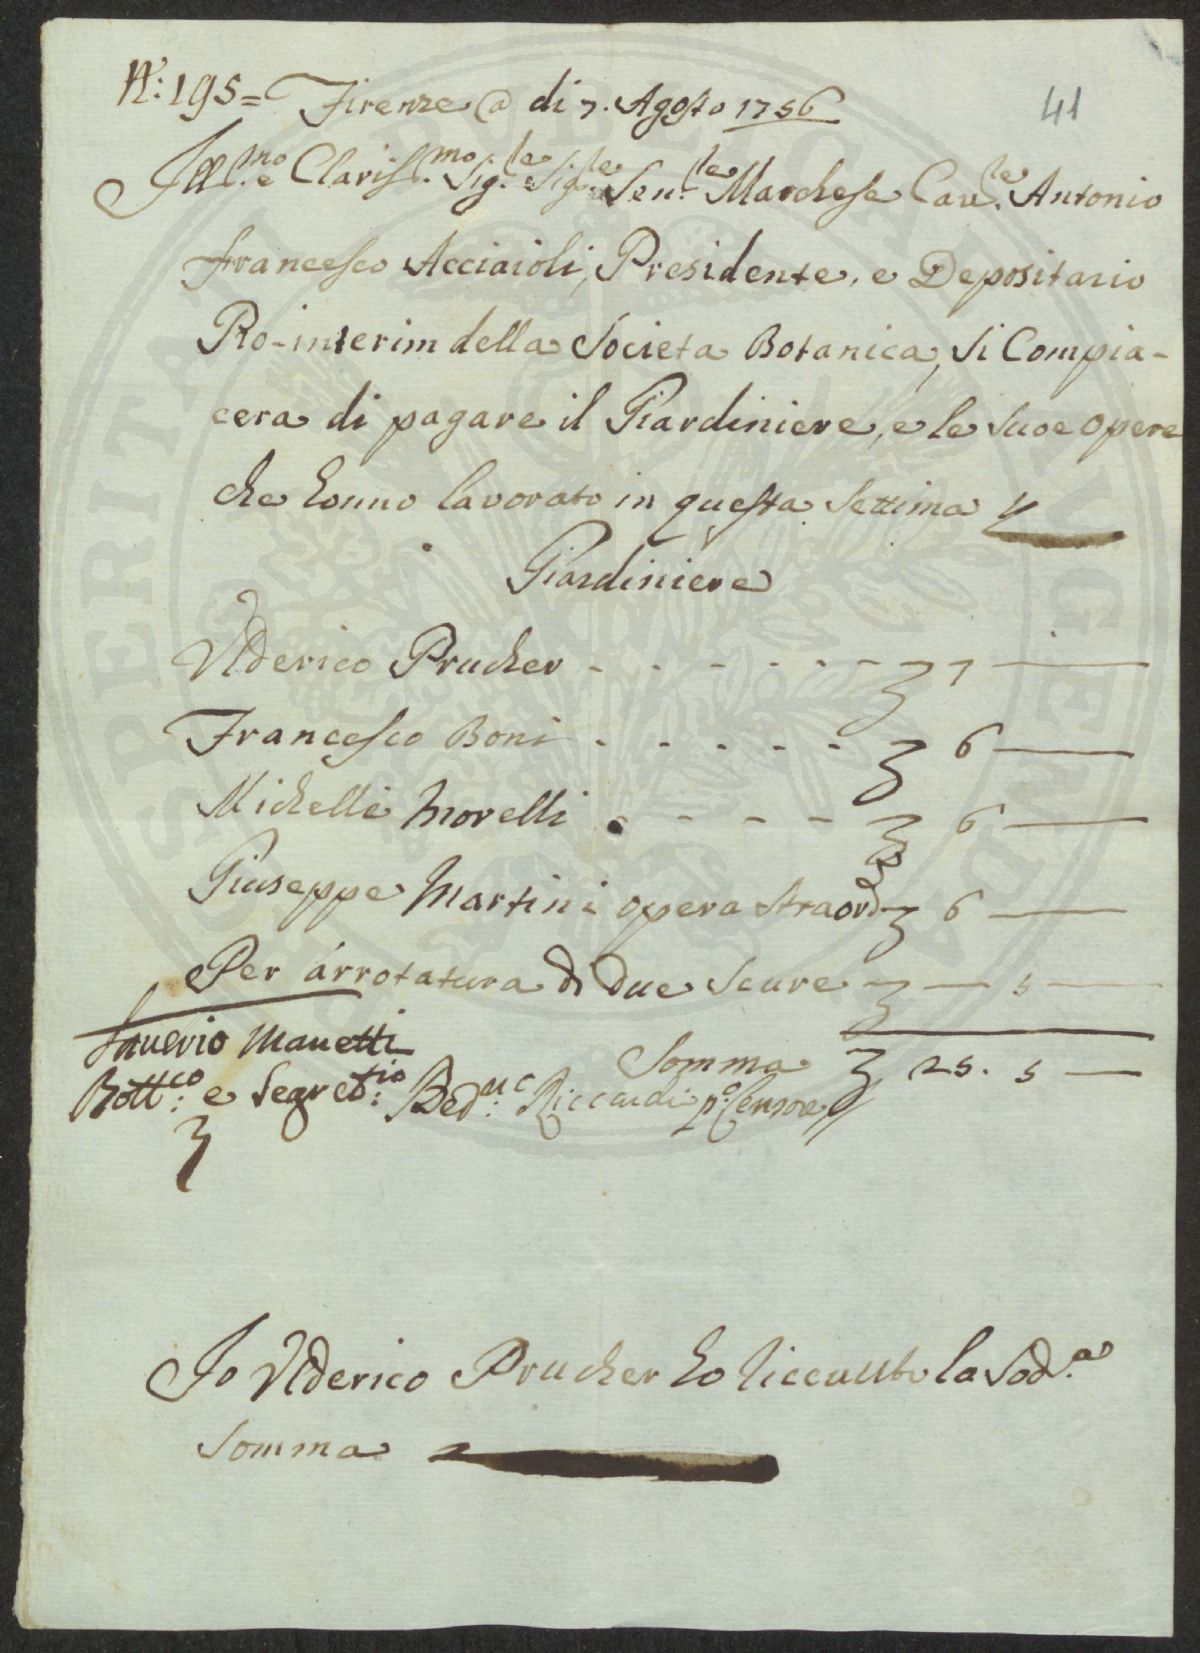 N.: 195= Firenze @ di 7. Agosto 1756
41
Ill.mo e Clariss.mo Sig.le Sig.le Sen.le Marchese Cav.le Antonio
Francesco Acciaioli, Presidente, e Depositario
Pro-interim della Societa Botanica, Si Compia-
cera di pagare il Giardiniere, e le Suoe opere
che honno lavorato in questa Settima
Giardiniere
Uderico Prucher - - - - - - - 7 —
Francesco Boni - - - - - - 6 —
Michelle Morelli . - - - - 6 —
Giuseppe Martini opera Straord 6 —
Per arrotatura di due Scure — 5 —
Somma 25. 5 —
Saverio Manetti
Bott.co e Segret.rio
Bed.uc Riccardi p.o Censore
Io Uderico Prucher ho Riccauto la Sod.a
Somma
SPERITAT PUBLICAE AUGENDAE